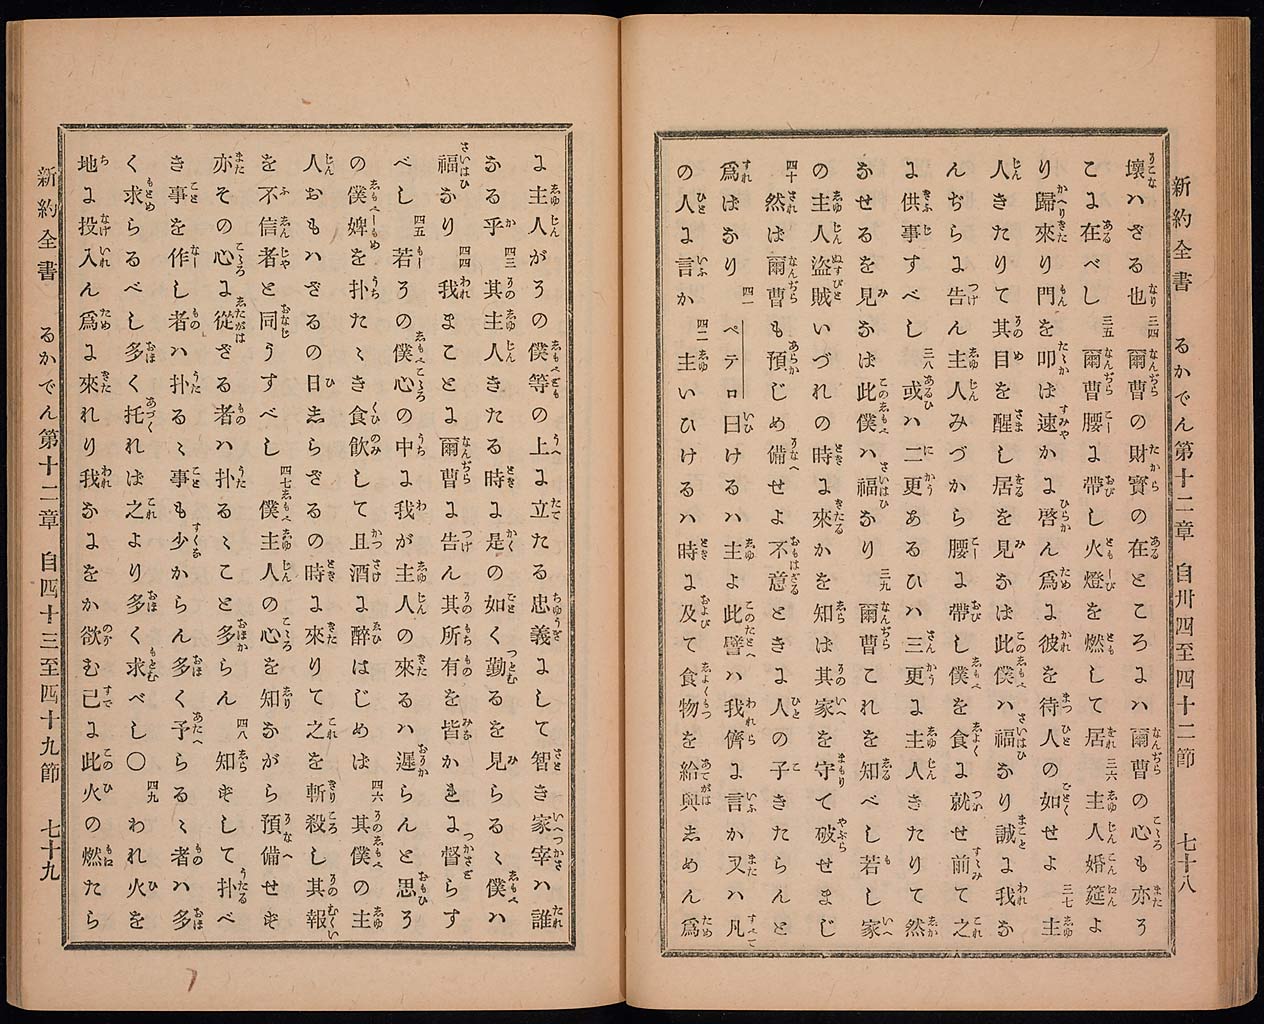 新約全書　るかでん第十二章　自卅四至四十二節　七十八
壞ハざる也 三四 爾曹の財寶の在ところにハ爾曹の心も亦そ
こに在べし 三五 爾曹腰に帶し火燈を燃して居 三六 主人婚筵よ
り歸來り門を叩は速かに啓ん爲に彼を待人の如せよ 三七 主
人きたりて其目を醒し居を見なは此僕ハ福なり誠に我な
んぢらに告ん主人みづから腰に帶し僕を食に就せ前て之
に供事すべし 三八 或ハ二更あるひハ三更に主人きたりて然
なせるを見なは此僕ハ福なり 三九 爾曹これを知べし若し家
の主人盜賊いづれの時に來かを知は其家を守て破せまじ
四十 然は爾曹も預じめ備せよ不意ときに人の子きたらんと
爲はなり 四一 ペテロ曰けるハ主よ此譬ハ我儕に言か又ハ凡
の人に言か 四二 主いひけるハ時に及て食物を給與しめん爲
に主人がその僕等の上に立たる忠義にして智き家宰ハ誰
なる乎 四三 其主人きたる時に是の如く勤るを見らるゝ僕ハ
福なり 四四 我まことに爾曹に告ん其所有を皆かれに督らす
べし 四五 若その僕心の中に我が主人の來るハ遲らんと思そ
の僕婢を扑たゝき食飮して且酒に醉はじめは 四六 其僕の主
人おもハざるの日しらざるの時に來りて之を斬殺し其報
を不信者と同うすべし 四七 僕主人の心を知ながら預備せず
亦その心に從ざる者ハ扑るゝこと多らん 四八 知ずして扑べ
き事を作し者ハ扑るゝ事も少からん多く予らるゝ者ハ多
く求らるべし多く托れば之より多く求べし〇 四九 われ火を
地に投入ん爲に來れり我なにをか欲む已に此火の燃たら
新約全書　るかでん第十二章　自四十三至四十九節　七十九